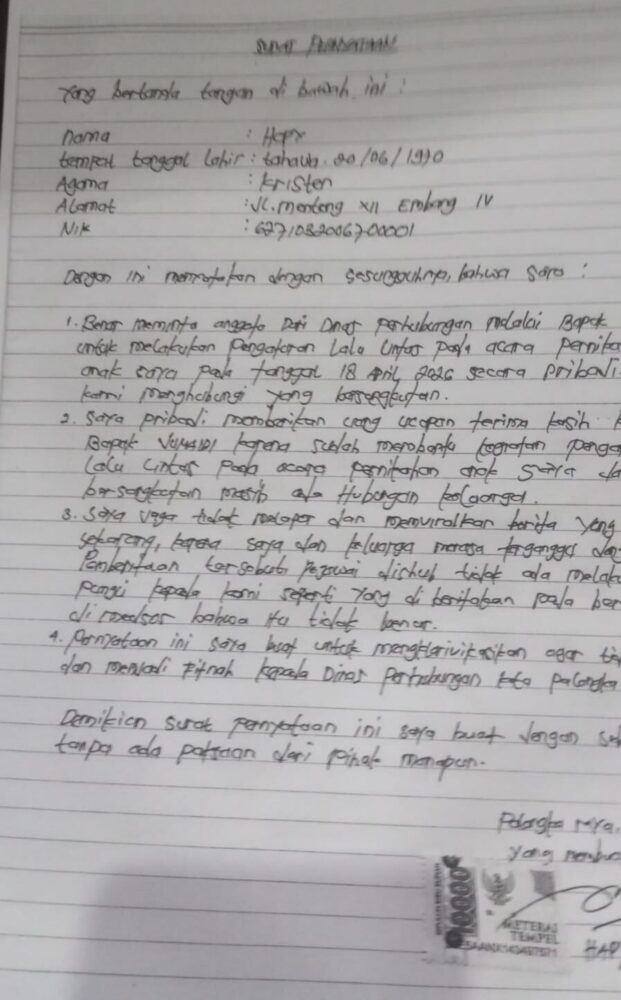 SURAT PERNYATAAN
Yang bertanda tangan di bawah ini :
Nama : Hapy
tempat tanggal lahir : tahaub. 20/06/1970
Agama : Kristen
Alamat : JL. menteng XII Embang IV
Nik :
Dengan ini menyatakan dengan sesungguhnya, bahwa saya :
1. Benar meminta anggota Dari Dinas Perhubungan melalui Bapak
untuk melakukan Pengaturan Lalu Lintas pada acara pernika
anak saya pada tanggal 18 April 2026 secara pribadi.
kami menghubungi yang bersangkutan.
2. Saya pribadi memberikan uang ucapan terima kasih k
Bapak karena sudah membantu kegiatan penga
Lalu Lintas pada acara pernikahan anak saya da
bersangkutan masih ada Hubungan keluarga.
3. Saya juga tidak melapor dan memviralkan berita yang
sekarang, karena saya dan keluarga merasa terganggu den
Pemberitaan tersebut, pegawai dishub tidak ada melaku
pungli kepada kami seperti yang di beritakan pada ber
di medsos bahwa itu tidak benar.
4. Pernyataan ini saya buat untuk mengklarivikasikan agar ti
dan menjadi fitnah kepada Dinas Perhubungan kota palangka
Demikian surat pernyataan ini saya buat dengan se
tanpa ada paksaan dari pihak manapun.
Palangka raya,
yang membu
10000
METERAI
TEMPEL
HAP